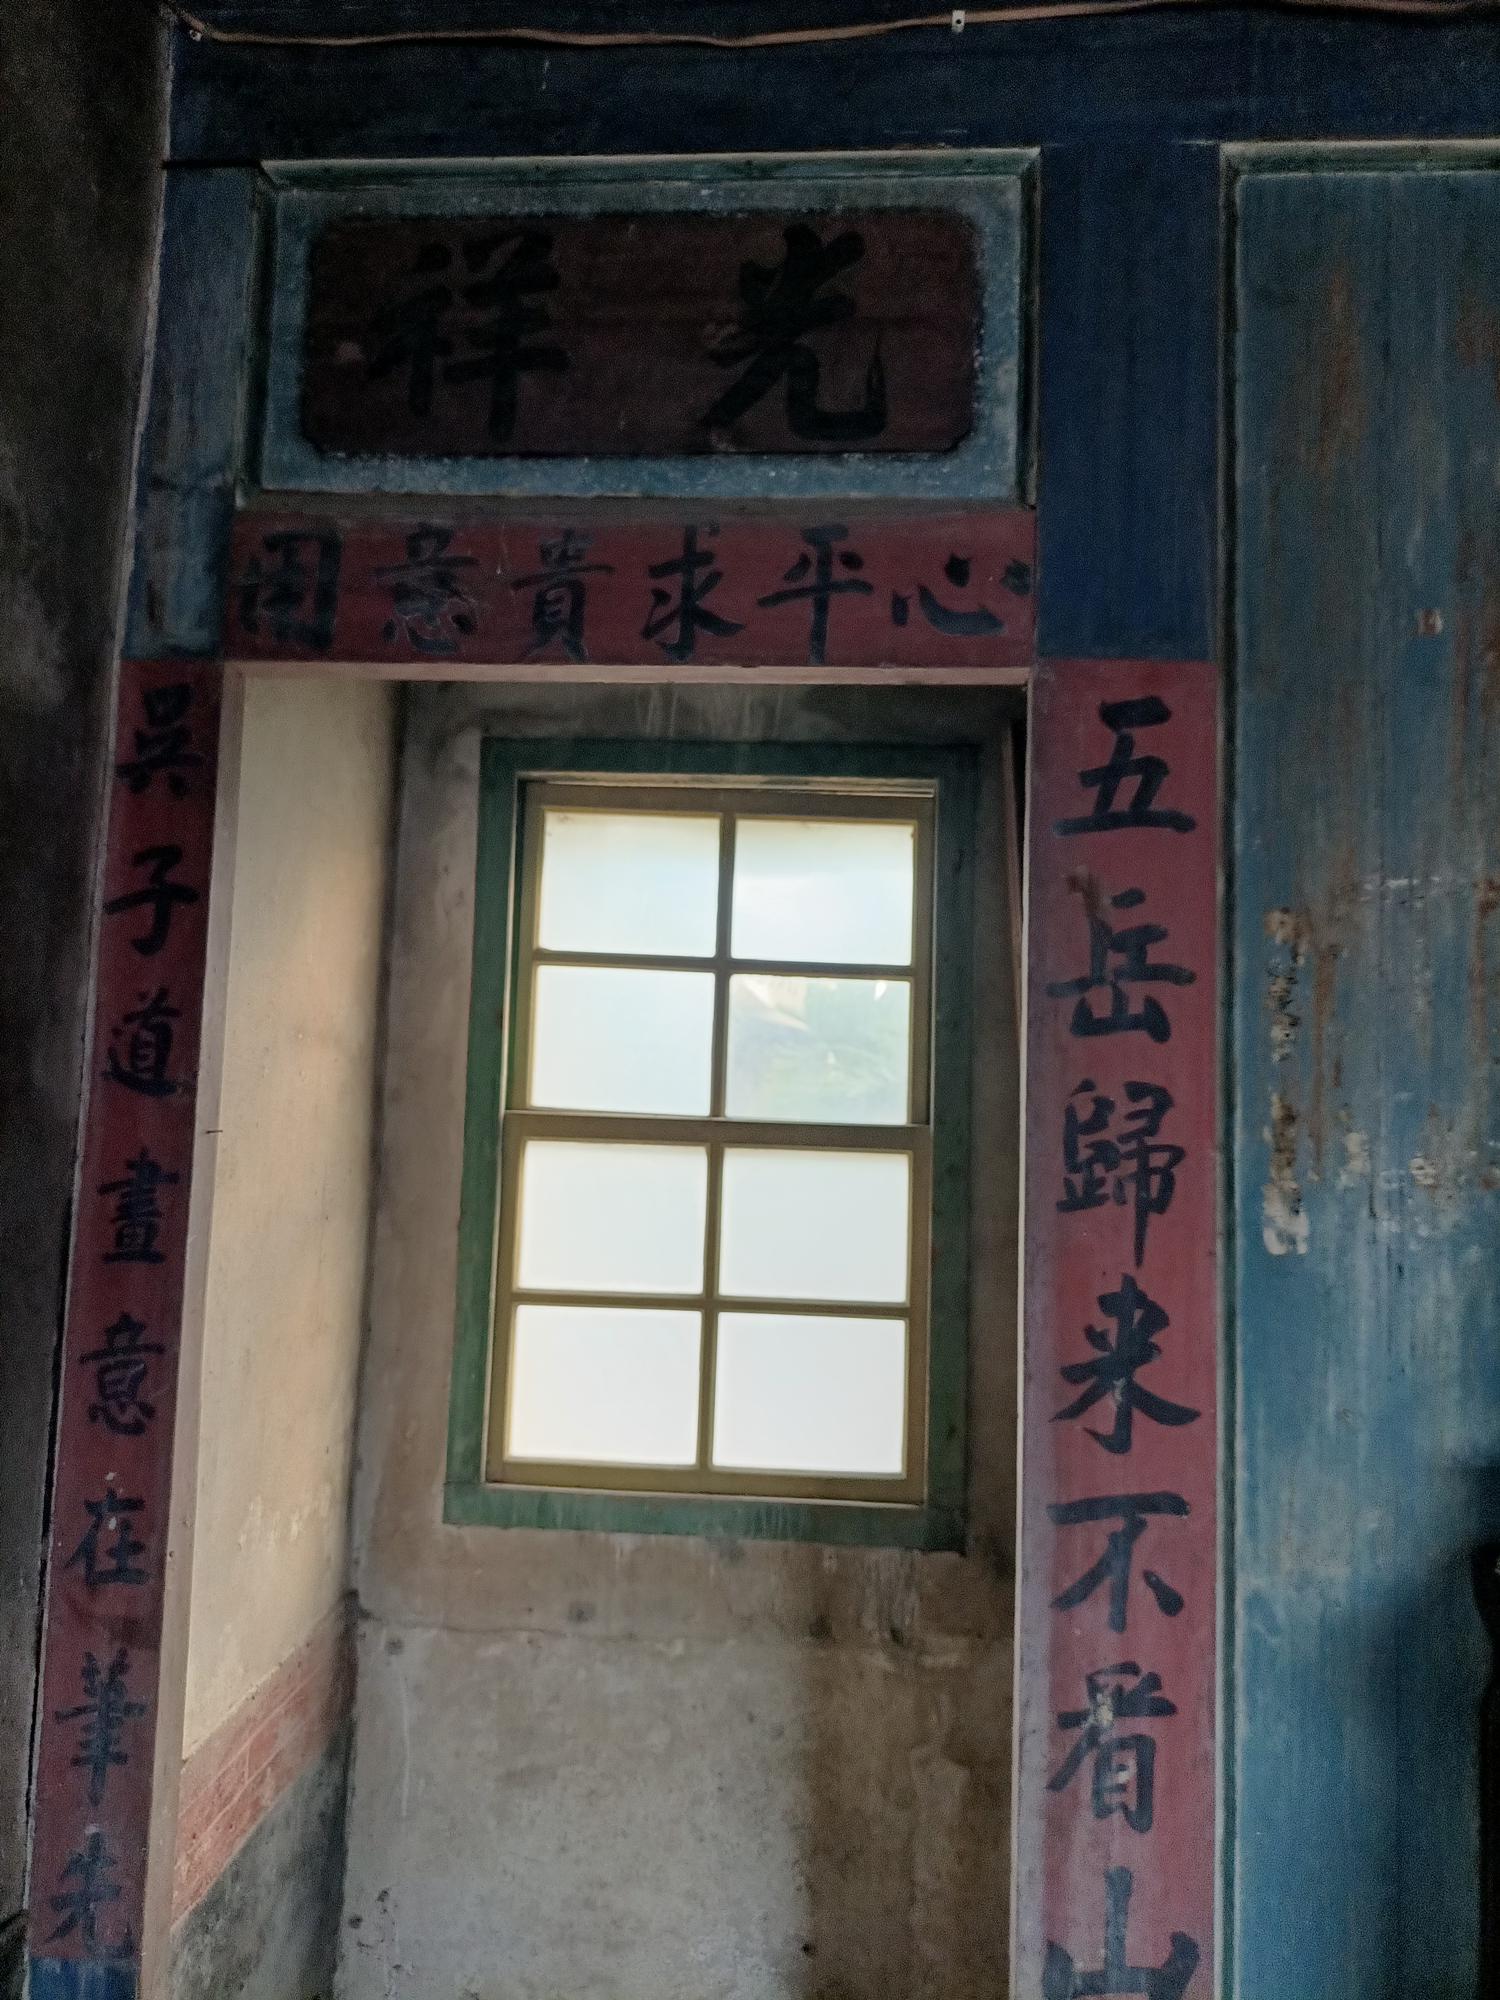 光祥
心平求貴意
五岳歸来不看山
吳子道畫意在筆先